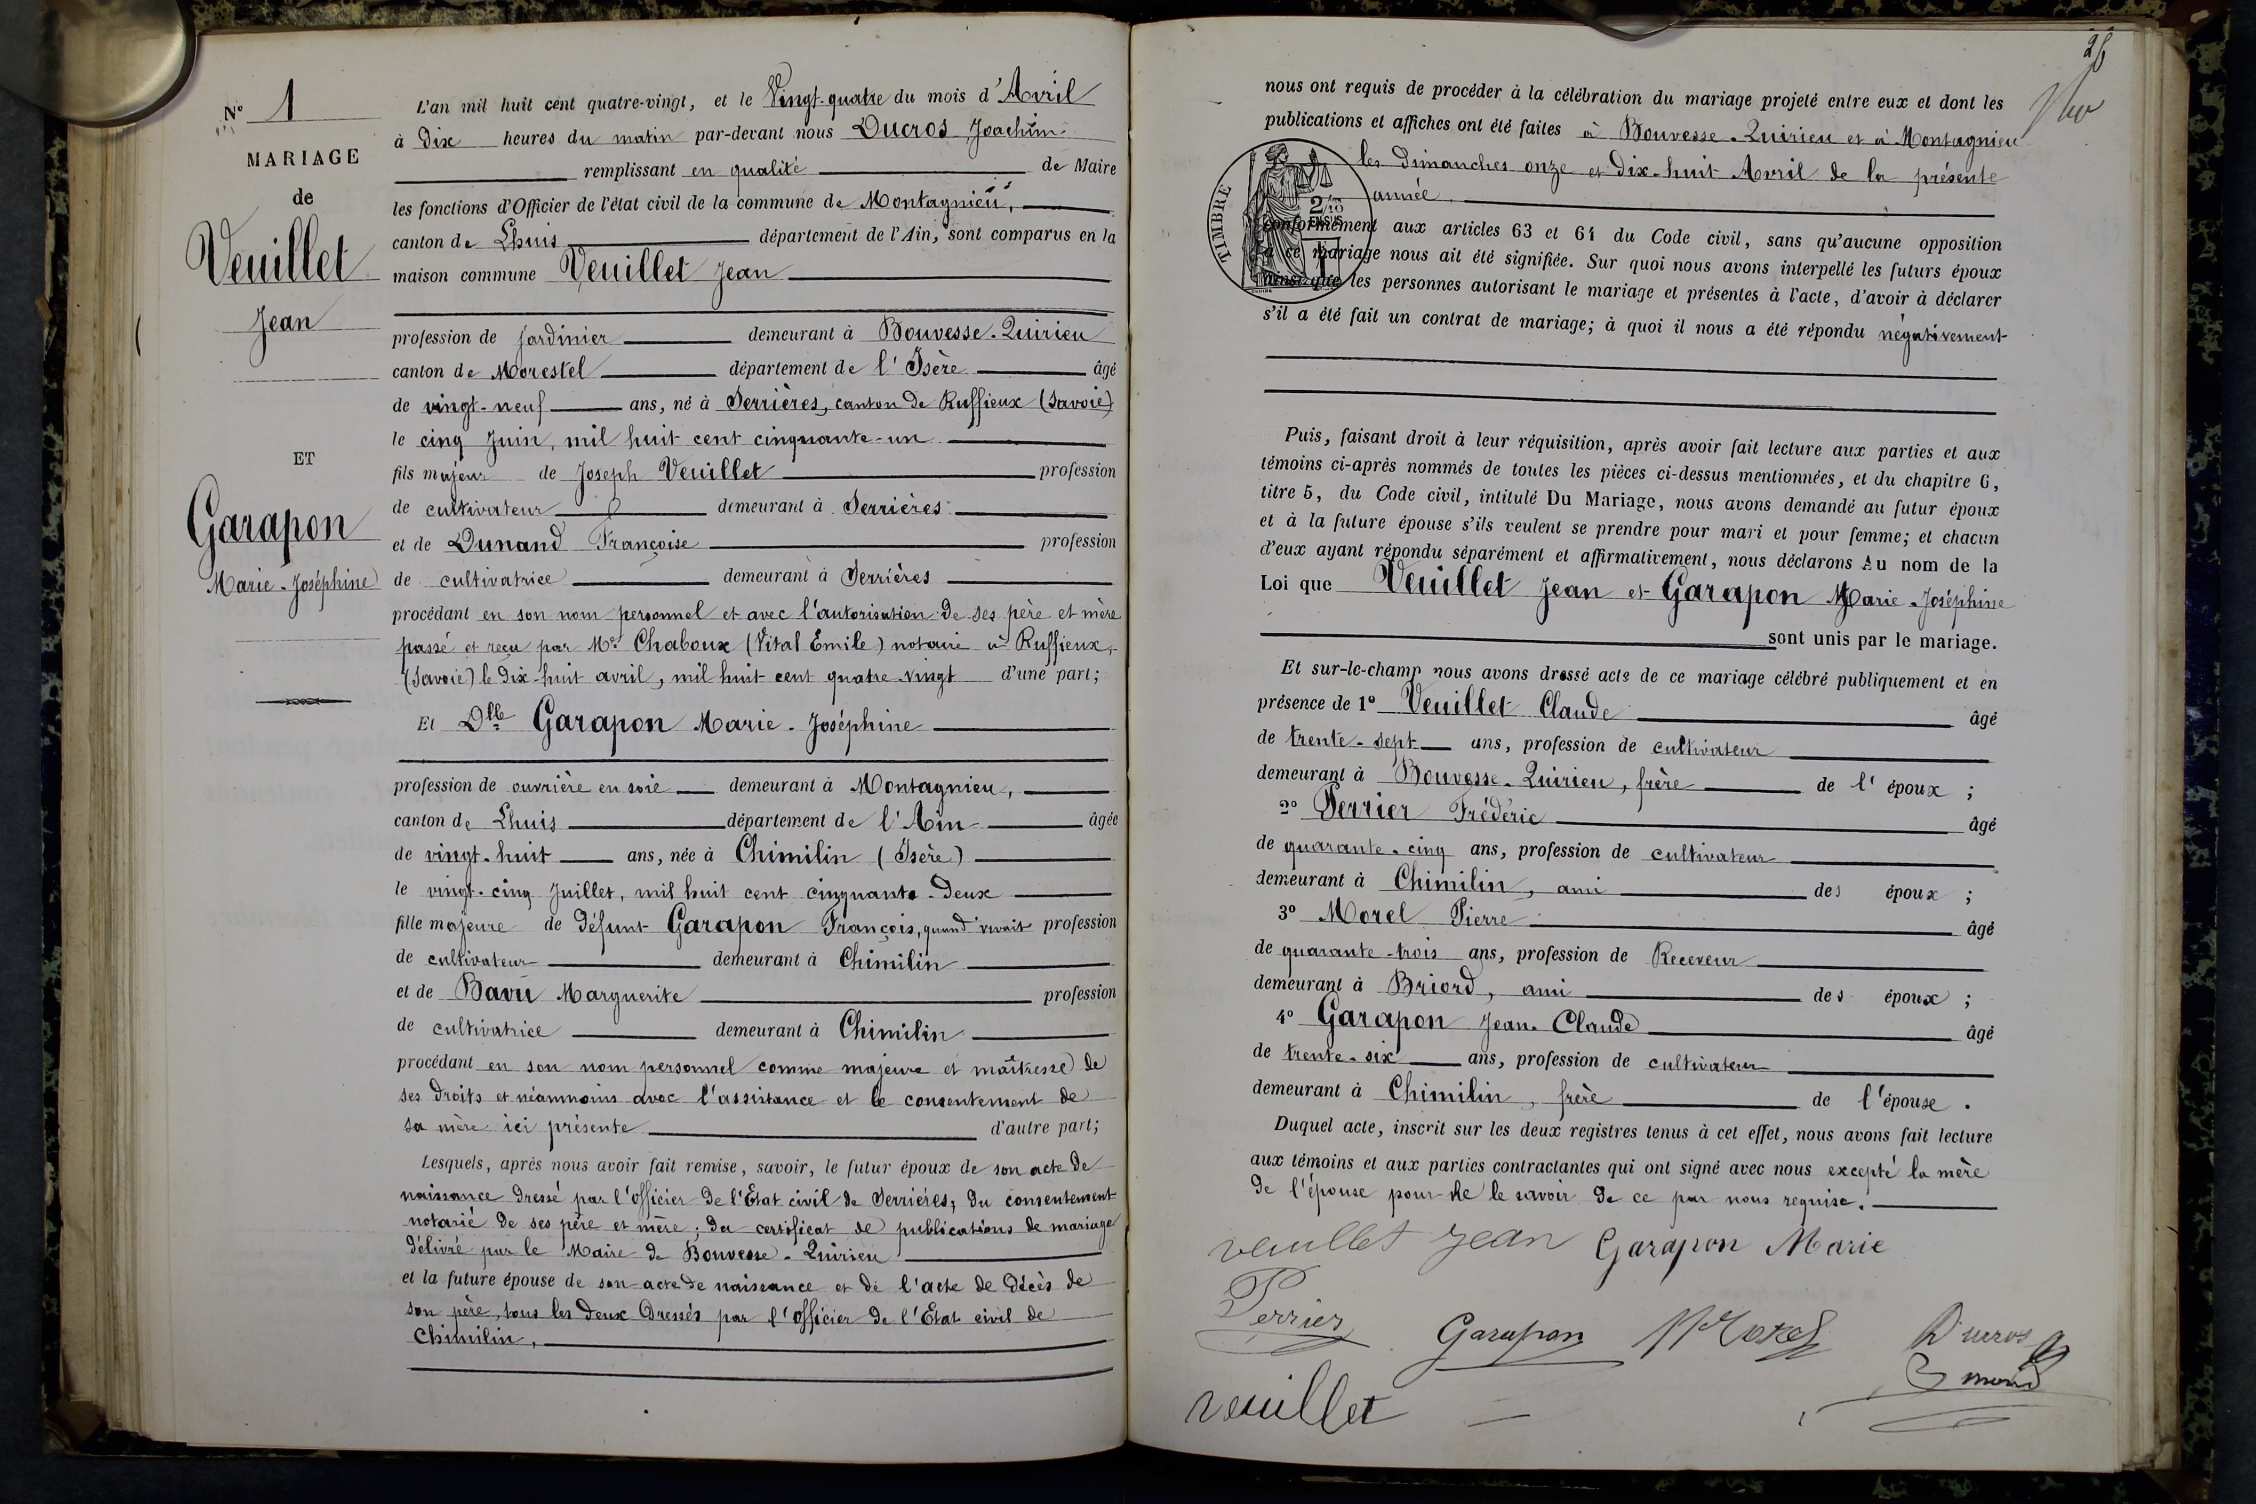 N° 1
MARIAGE
de
Veuillet
Jean
ET
Garapon
Marie-Joséphine
L'an mil huit cent quatre-vingt, et le Vingt-quatre du mois d'Avril
à Dix heures du matin par-devant nous Ducros Joachim
remplissant en qualité de Maire
les fonctions d'Officier de l'état civil de la commune de Montagnieu,
canton de Lhuis département de l'Ain, sont comparus en la
maison commune Veuillet Jean
profession de jardinier demeurant à Bouvesse-Quirieu
canton de Morestel département de l'Isère âgé
de vingt-neuf ans, né à Serrières, canton de Ruffieux (Savoie)
le cinq Juin, mil huit cent cinquante-un
fils majeur de Joseph Veuillet profession
de cultivateur demeurant à Serrières
et de Dunand Françoise profession
de cultivatrice demeurant à Serrières
procédant en son nom personnel et avec l'autorisation de ses père et mère
passé et reçu par Me Chaboux (Vital Emile) notaire à Ruffieux,
(Savoie) le dix-huit avril, mil huit cent quatre vingt d'une part;
Et Dlle Garapon Marie-Joséphine
profession de ouvrière en soie demeurant à Montagnieu,
canton de Lhuis département de l'Ain âgée
de vingt-huit ans, née à Chimilin (Isère)
le vingt-cinq Juillet, mil huit cent cinquante-deux
fille majeure de défunt Garapon François, quand vivait profession
de cultivateur demeurant à Chimilin
et de Bavu Marguerite profession
de cultivatrice demeurant à Chimilin
procédant en son nom personnel comme majeure et maîtresse de
ses droits et néamnoins avec l'assistance et le consentement de
sa mère ici présente d'autre part;
Lesquels, après nous avoir fait remise, savoir, le futur époux de son acte de
naissance dressé par l'officier de l'Etat civil de Serrières, du consentement
notarié de ses père et mère; du certificat de publications de mariage
délivré par le Maire de Bouvesse-Quirieu
et la future épouse de son acte de naissance et de l'acte de décès de
son père, tous les deux dressés par l'officier de l'Etat civil de
Chimilin,
26
nous ont requis de procéder à la célébration du mariage projeté entre eux et dont les
publications et affiches ont été faites à Bouvesse-Quirieu et à Montagnieu
les dimanches onze et dix-huit Avril de la présente
année.
TIMBRE
2/10
EN SUS
conformément aux articles 63 et 64 du Code civil, sans qu'aucune opposition
à ce mariage nous ait été signifiée. Sur quoi nous avons interpellé les futurs époux
ainsi que les personnes autorisant le mariage et présentes à l'acte, d'avoir à déclarer
s'il a été fait un contrat de mariage; à quoi il nous a été répondu négativement
Puis, faisant droit à leur réquisition, après avoir fait lecture aux parties et aux
témoins ci-après nommés de toutes les pièces ci-dessus mentionnées, et du chapitre 6,
titre 5, du Code civil, intitulé Du Mariage, nous avons demandé au futur époux
et à la future épouse s'ils veulent se prendre pour mari et pour femme; et chacun
d'eux ayant répondu séparément et affirmativement, nous déclarons Au nom de la
Loi que Veuillet Jean et Garapon Marie-Joséphine
sont unis par le mariage.
Et sur-le-champ nous avons dressé acte de ce mariage célébré publiquement et en
présence de 1° Veuillet Claude âgé
de trente-sept ans, profession de cultivateur
demeurant à Bouvesse-Quirieu, frère de l'époux ;
2° Perrier Frédéric âgé
de quarante-cinq ans, profession de cultivateur
demeurant à Chimilin, ami des époux ;
3° Morel Pierre âgé
de quarante-trois ans, profession de Receveur
demeurant à Briord, ami des époux ;
4° Garapon Jean-Claude âgé
de trente-six ans, profession de cultivateur
demeurant à Chimilin, frère de l'épouse.
Duquel acte, inscrit sur les deux registres tenus à cet effet, nous avons fait lecture
aux témoins et aux parties contractantes qui ont signé avec nous excepté la mère
de l'épouse pour ne le savoir de ce par nous requise.
veuillet Jean Garapon Marie
Perrier Garapon Morel Ducros
veuillet